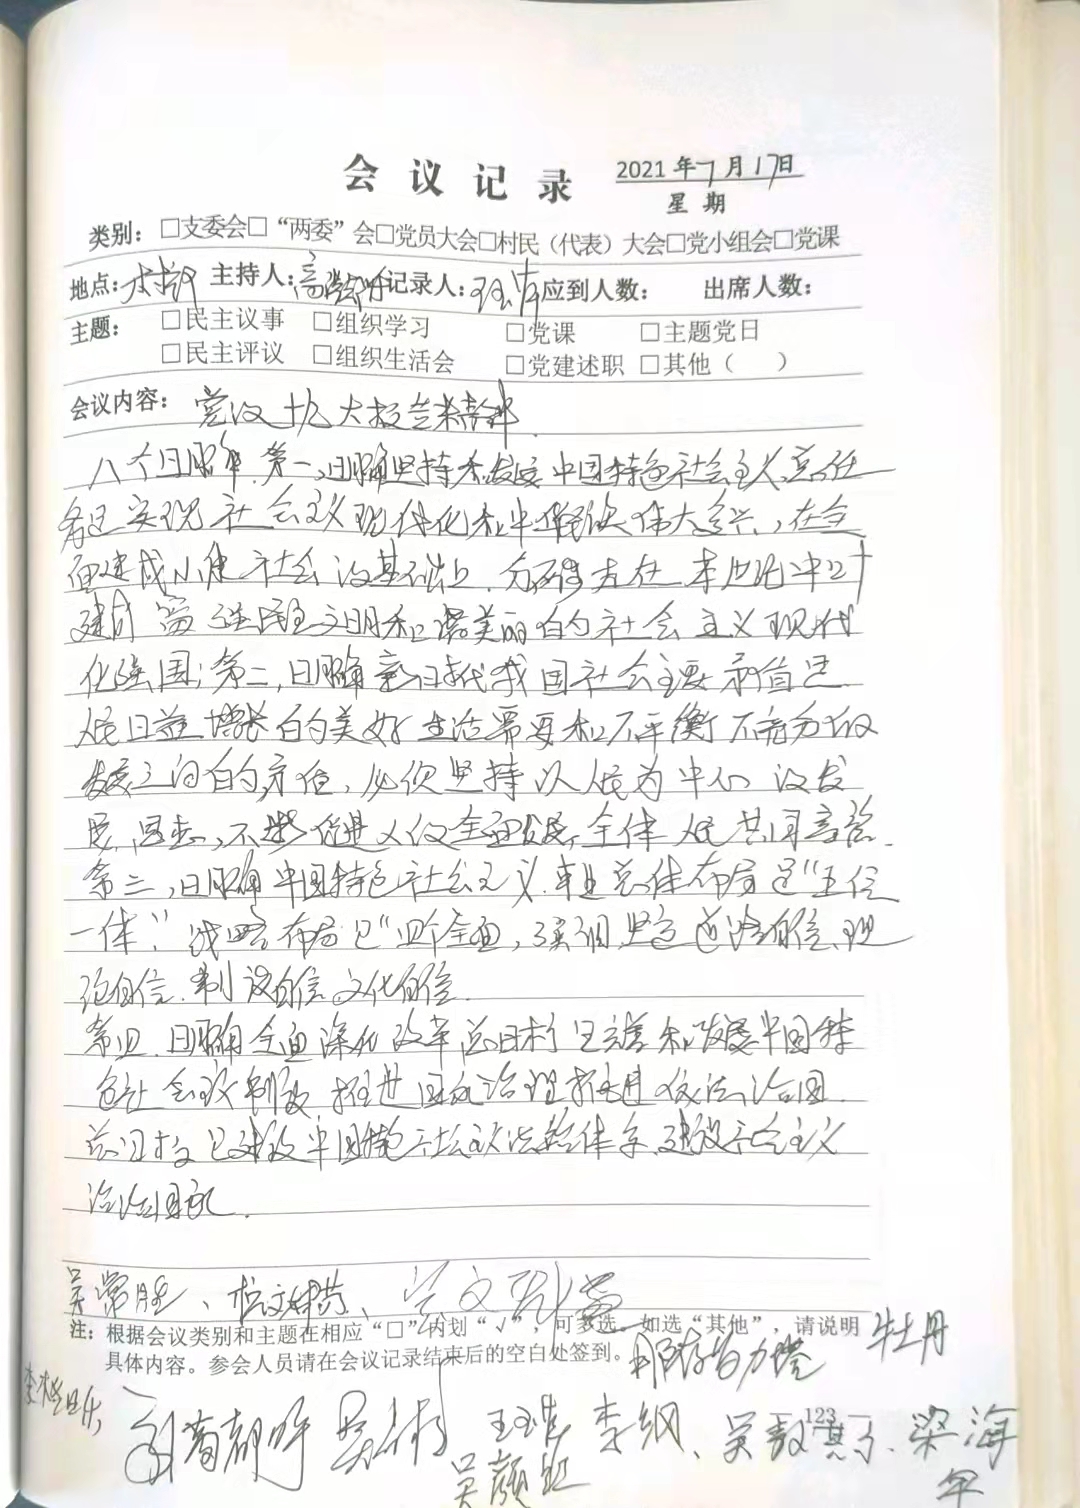 会议记录 2021年7月17日
星期
类别：□支委会□“两委”会□党员大会□村民（代表）大会□党小组会□党课
地点： 主持人： 记录人： 应到人数： 出席人数：
主题： □民主议事 □组织学习 □党课 □主题党日
□民主评议 □组织生活会 □党建述职 □其他（ ）
会议内容： 党的十九大报告 精神
八个明确 第一，明确坚持和发展中国特色社会主义，总任
务是实现社会主义现代化和中华民族伟大复兴，在全
面建成小康社会的基础上，分两步走在本世纪中叶
建成富强民主文明和谐美丽的社会主义现代
化强国；第二，明确新时代我国社会主要矛盾是
人民日益增长的美好生活需要和不平衡不充分的
发展之间的矛盾，必须坚持以人民为中心的发
展思想，不断促进人的全面发展，全体人民共同富裕
第三，明确中国特色社会主义事业总体布局是“五位
一体”，战略布局是“四个全面，强调坚定道路自信、理
论自信、制度自信、文化自信。
第四，明确全面深化改革总目标是完善和发展中国特
色社会主义制度，推进国家治理 推进依法治国
总目标是建设中国特色社会主义法治体系，建设社会主义
法治国家。
吴常胜、
注：根据会议类别和主题在相应“□”内划“√”，可多选。如选“其他”，请说明
具体内容。参会人员请在会议记录结束后的空白处签到。
牡丹
— 123 —
李纲、梁海
军